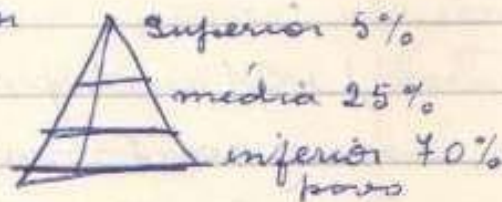 Superior 5%
média 25%
inferior 70%
povo